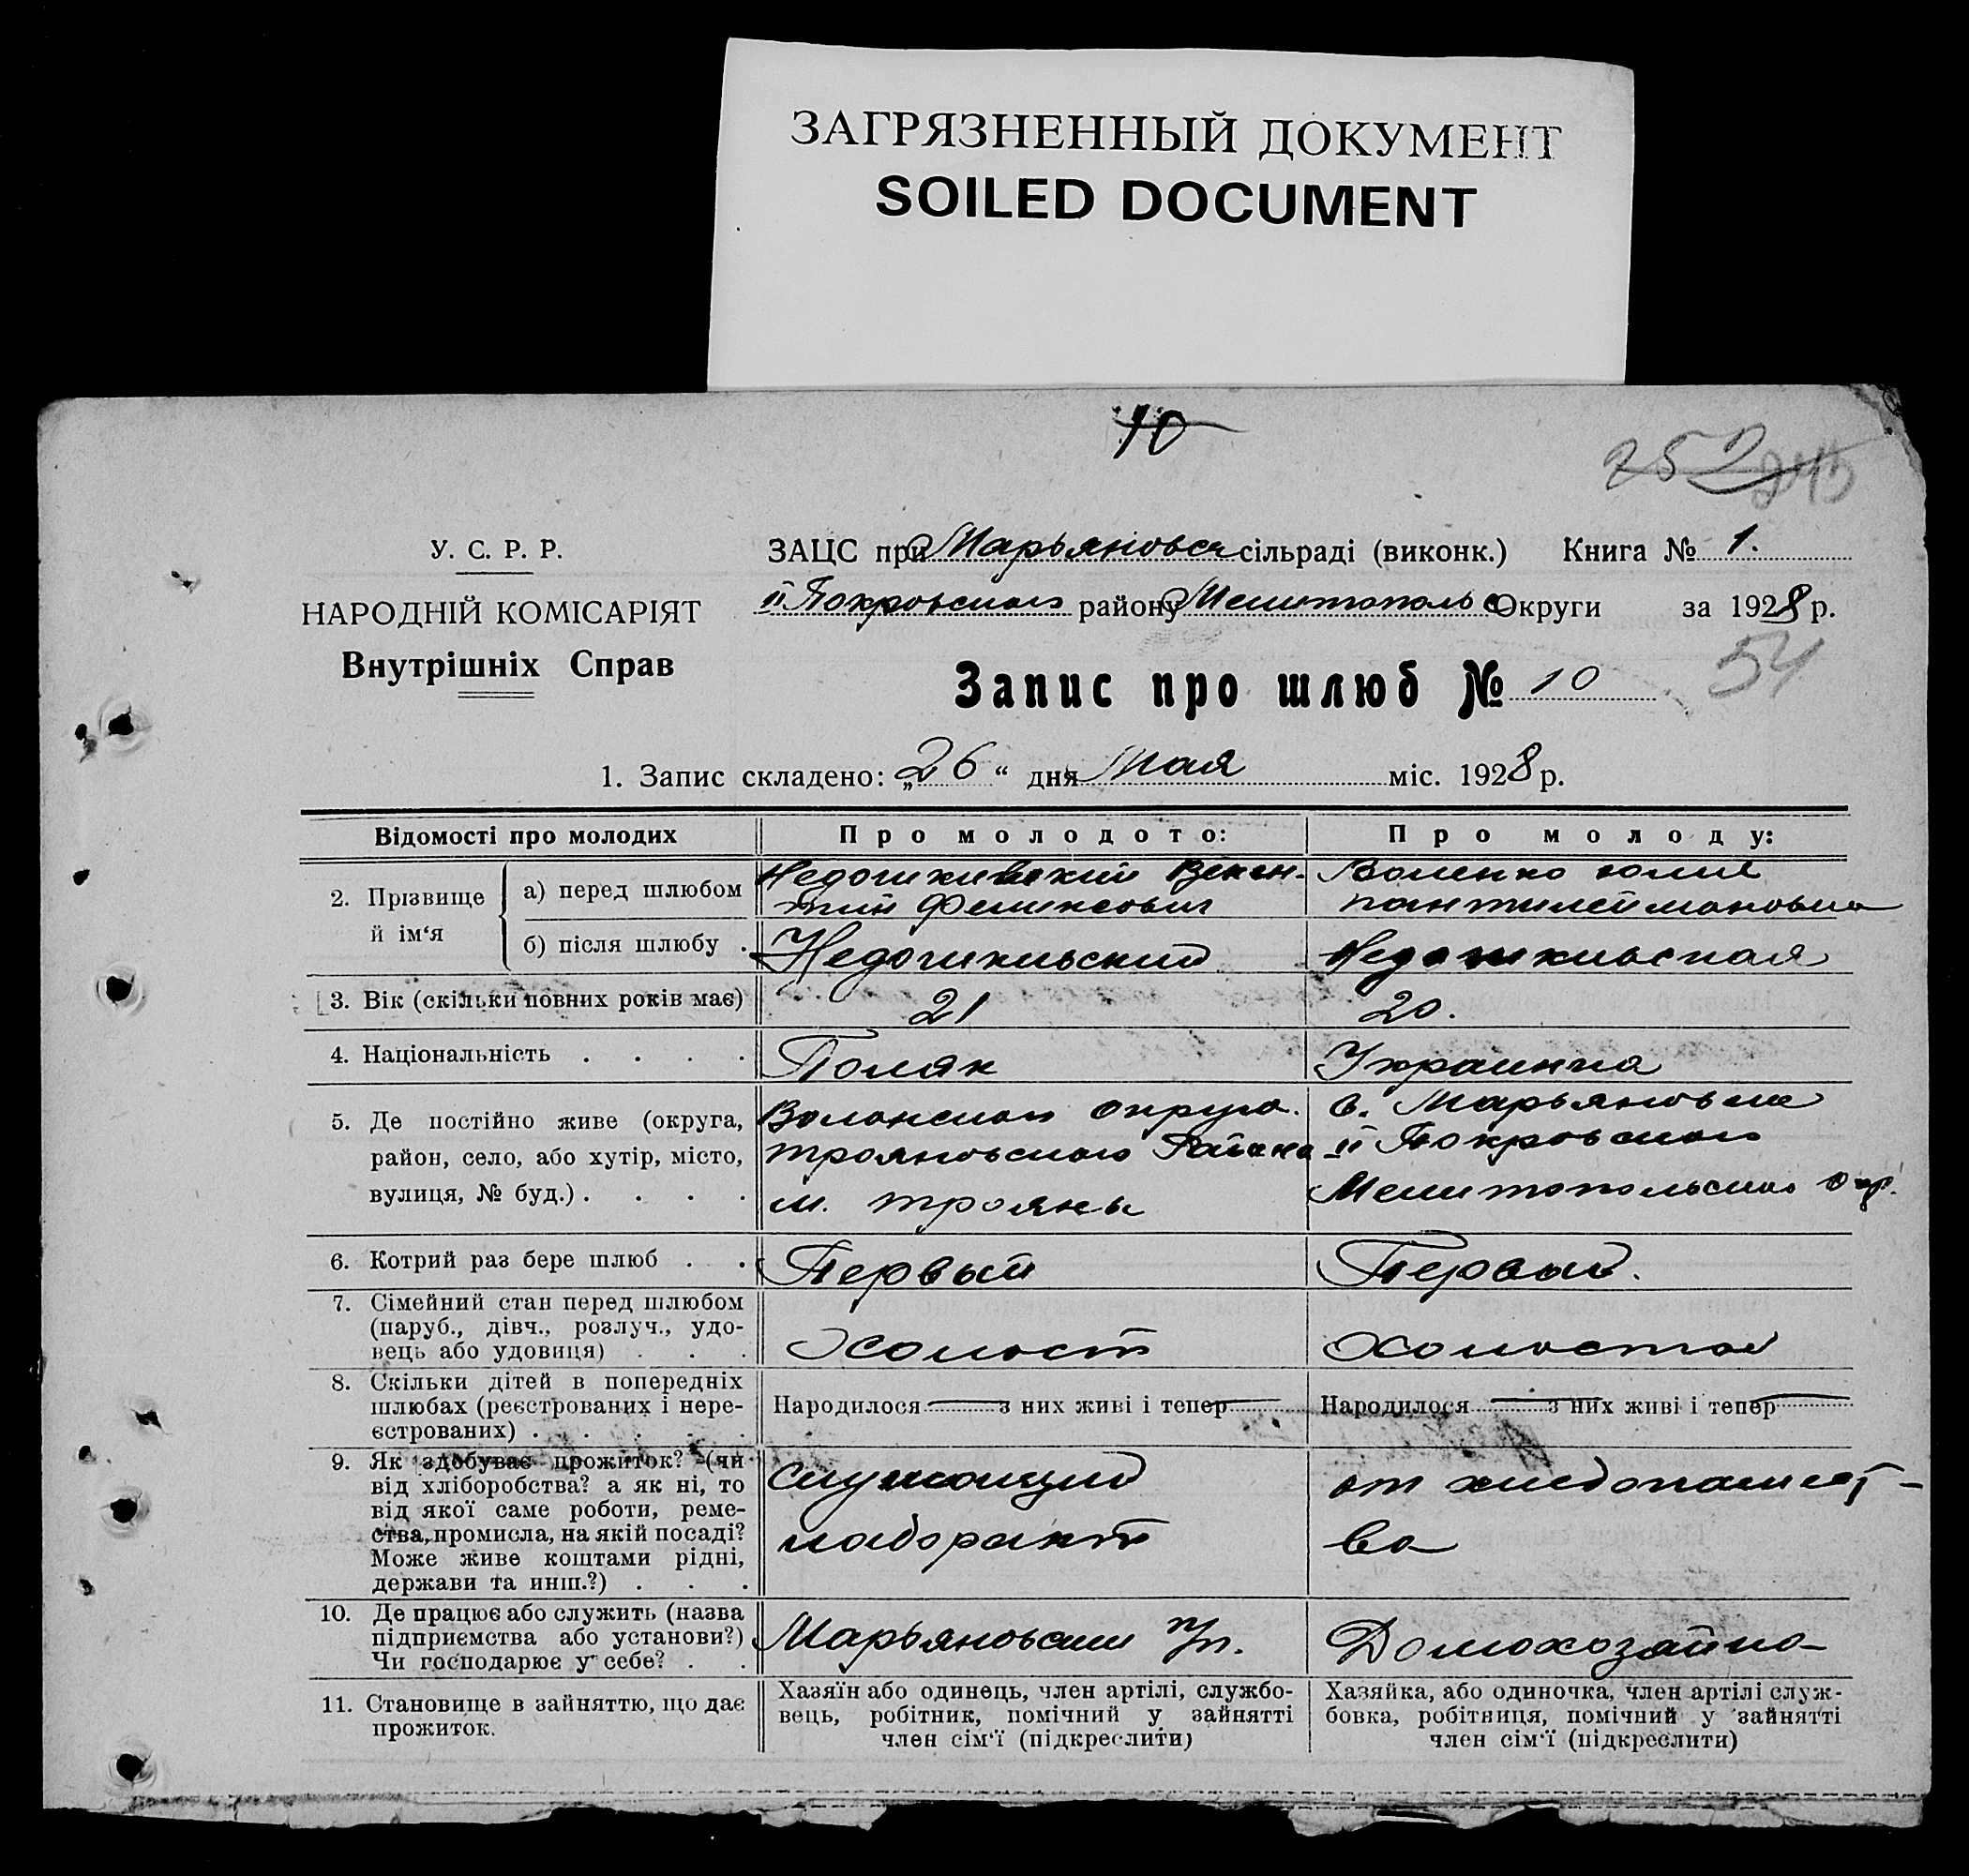 ЗАГРЯЗНЕННЫЙ ДОКУМЕНТ
SOILED DOCUMENT
10
252 245
У. С. Р. Р.
НАРОДНІЙ КОМІСАРІЯТ
Внутрішніх Справ
ЗАЦС при Марьяновск сільраді (виконк.) Книга № 1.
ІІ Покровского району Мелитопольс Округи за 1928 р.
54
Запис про шлюб № 10
1. Запис складено: „26“ дня Мая міс. 1928 р.
Відомості про молодих
Про молодого:
Про молоду:
2. Прізвище й ім‘я
а) перед шлюбом
Феликсович
Юлия
пантилеймоновна
б) після шлюбу .
3. Вік (скільки повних років має)
21
20.
4. Національність . . . .
Поляк
Украинка
5. Де постійно живе (округа,
район, село, або хутір, місто,
вулиця, № буд.) . . . .
округа.
трояновского Района
м. трояны
с. Марьяновка
ІІ Покровского
Мелитопольского окр.
6. Котрий раз бере шлюб . .
Первый
Первый.
7. Сімейний стан перед шлюбом
(паруб., дівч., розлуч., удо-
вець або удовиця) . . .
Холост
Холостой
8. Скільки дітей в попередніх
шлюбах (реєстрованих і нере-
єстрованих) . . . . .
Народилося — з них живі і тепер —
Народилося — з них живі і тепер —
9. Як здобуває прожиток? (чи
від хліборобства? а як ні, то
від якої саме роботи, реме-
ства, промисла, на якій посаді?
Може живе коштами рідні,
держави та инш.?) . . .
служащий
лаборант
от
ва
10. Де працює або служить (назва
підприємства або установи?)
Чи господарює у себе? . .
Марьяновский п/п.
Домохозяйка
11. Становище в зайняттю, що дає
прожиток.
Хазяїн або одинець, член артілі, службо-
вець, робітник, помічний у зайнятті
член сім‘ї (підкреслити)
Хазяйка, або одиночка, член артілі служ-
бовка, робітниця, помічний у зайнятті
член сім‘ї (підкреслити)